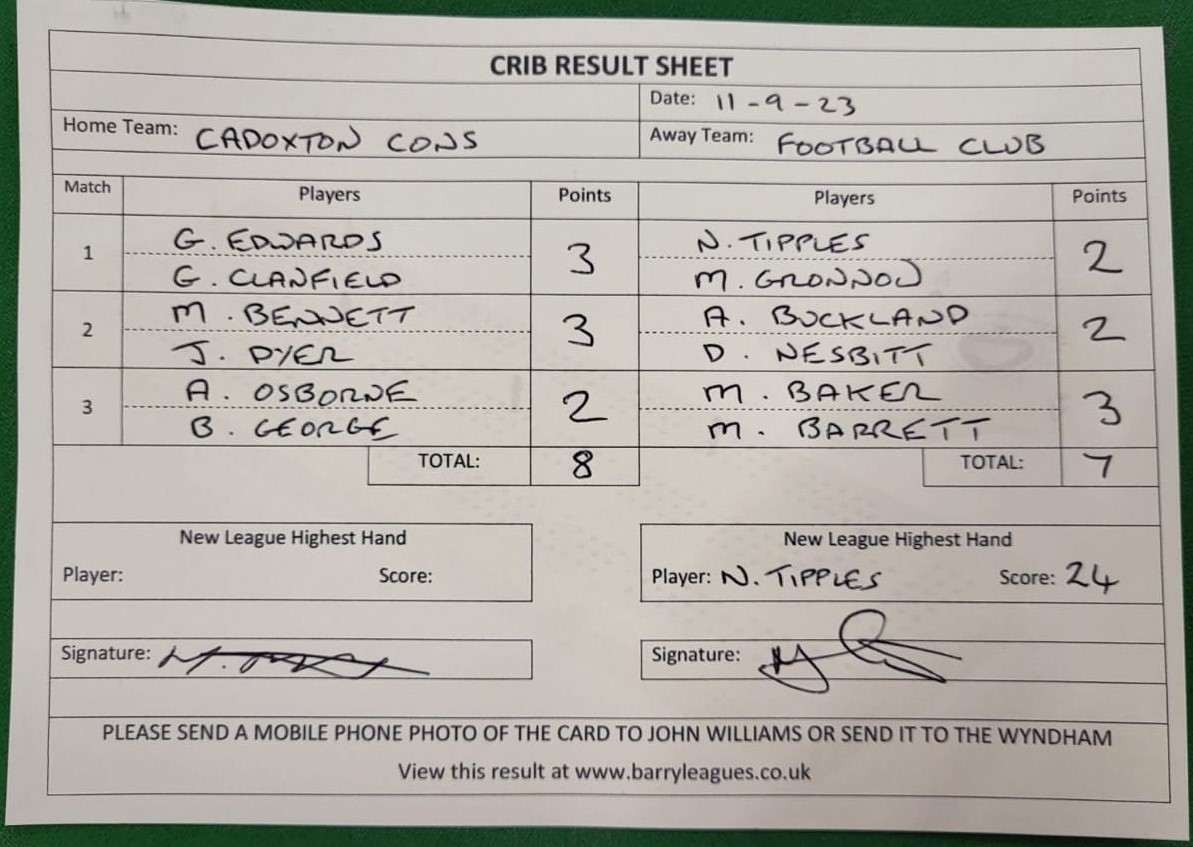 CRIB RESULT SHEET
Date: 11-9-23
Home Team: CADOXTON CONS Away Team: FOOTBALL CLUB
Match Players Points Players Points
1 G. EDWARDS 3 N. TIPPLES 2
G. CLANFIELD M. GRONNOW
2 M. BENNETT 3 A. BUCKLAND 2
J. DYER D. NESBITT
3 A. OSBORNE 2 M. BAKER 3
B. GEORGE M. BARRETT
TOTAL: 8 TOTAL: 7
New League Highest Hand New League Highest Hand
Player: Score: Player: N. TIPPLES Score: 24
Signature: Signature:
PLEASE SEND A MOBILE PHONE PHOTO OF THE CARD TO JOHN WILLIAMS OR SEND IT TO THE WYNDHAM
View this result at www.barryleagues.co.uk